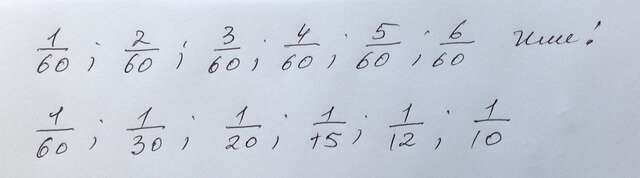 1/60 ; 2/60 ; 3/60 ; 4/60 ; 5/60 ; 6/60 или:
1/60 ; 1/30 ; 1/20 ; 1/15 ; 1/12 ; 1/10